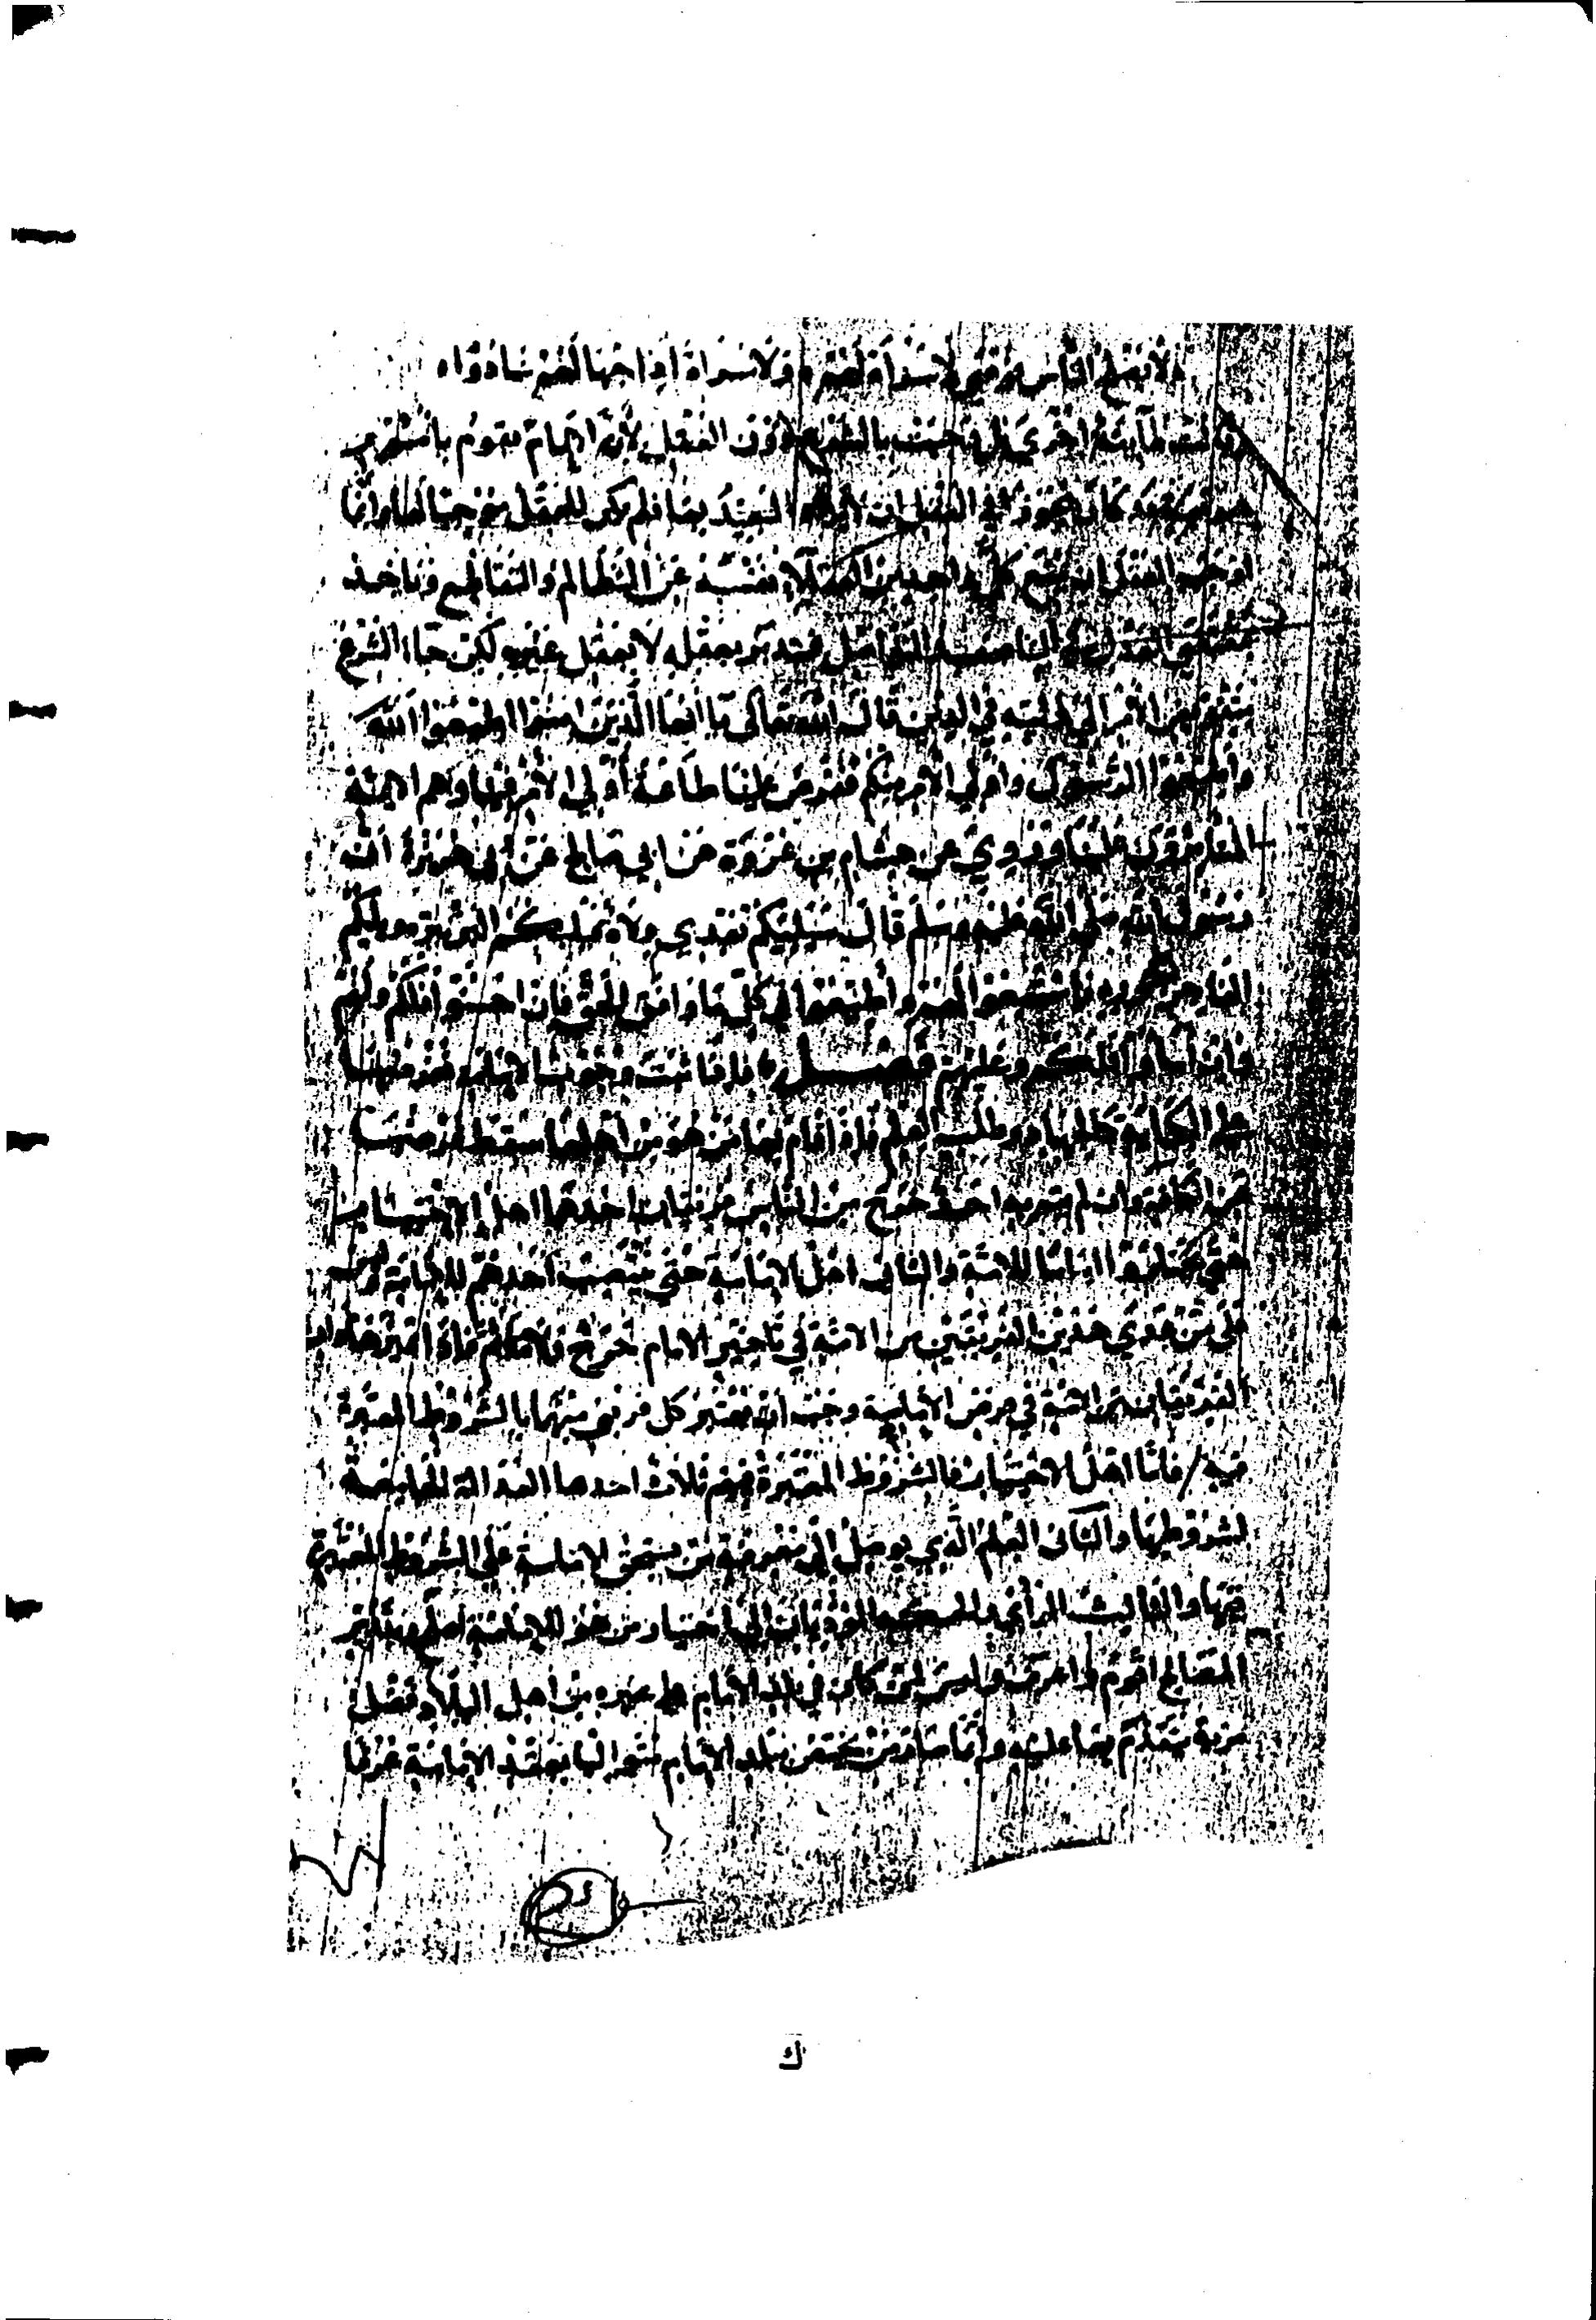 لا يصلح الناس فوضى لا سراة لهم ولا سراة اذا جهالهم سادوا
وقالت طائفة اخرى بل وجبت بالشرع دون العقل لأن الامام يقوم بامور
شرعية كان مجوزا في العقل ان لا يرد التعبد بها فلم يكن العقل موجبا لها وانما
اوجب العقل ان يمنع كل واحد من العقلاء نفسه عن التظالم والتقاطع وياخذ
بمقتضى العدل في التناصف والتواصل فيتدبر بعقله لا بعقل غيره ولكن جاء الشرع
بتفويض الأمر الى وليه في الدين قال الله تعالى يا ايها الذين امنوا اطيعوا الله
واطيعوا الرسول واولي الأمر منكم ففرض علينا طاعة أولي الأمر فينا وهم الأئمة
المتأمرون علينا وروي عن هشام بن عروة عن ابي صالح عن أبي هريرة أن
رسول الله صلى الله عليه وسلم قال سيليكم بعدي ولاة فيليكم البر ببره ويليكم
الفاجر بفجوره فاسمعوا لهم واطيعوا في كل ما وافق الحق فان احسنوا فلكم ولهم
وان أساؤا فلكم وعليهم فصل فاذا ثبت وجوب الامامة ففرضها
على الكفاية كالجهاد وطلب العلم فاذا قام بها من هو من اهلها سقط فرضها
عن الكافة وان لم يقم بها احد خرج من الناس فريقان احدهما اهل الاختيار
حتى يختاروا اماما للامة والثاني اهل الامامة حتى ينتصب احدهم للامامة وليس
على من عدى هذين الفريقين من الامة في تاخير الامام حرج ولا مأثم فاذا تميز هذان
الفريقان من الامة في فرض الامامة وجب أن يعتبر كل فريق منهما بالشروط المعتبرة
فيه فاما اهل الاختيار فالشروط المعتبرة فيهم ثلاث احدها العدالة الجامعة
لشروطها والثانى العلم الذي يوصل الى معرفة من يستحق الامامة على الشروط المعتبرة
فيها والثالث الرأي والحكمة المؤديان الى اختيار من هو للامامة اصلح وبتدبير
المصالح اقوم واعرف وليس لمن كان في بلد الامام على غيره من اهل البلاد فضل
مزية يتقدم بها عليه وانما صار من يختص ببلد الامام متوليا بعقد الامامة عرفا
ك